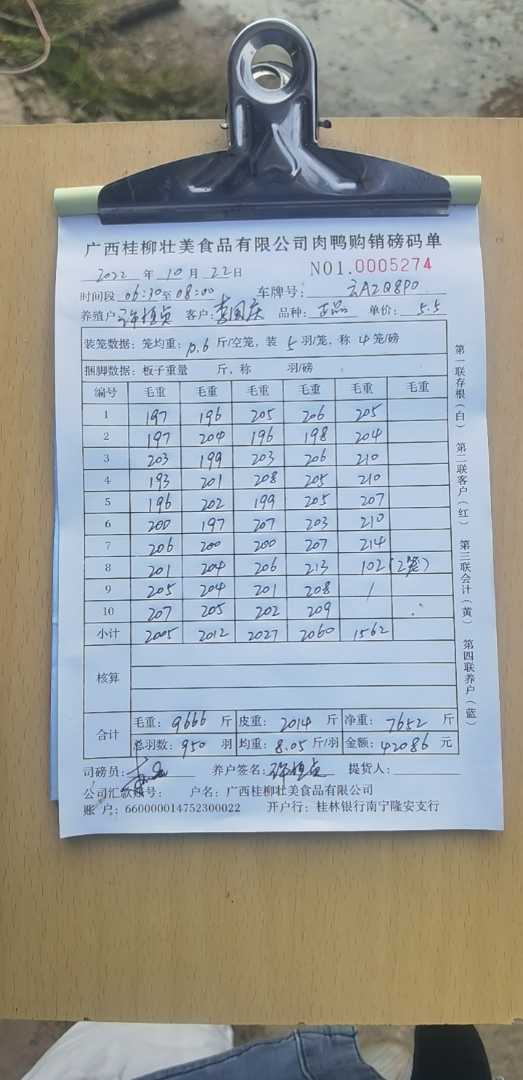 广西桂柳壮美食品有限公司肉鸭购销磅码单
2022 年 10 月 22 日 NO1.0005274
时间段 06:30至 08:00 车牌号: 云A2Q8P0
养殖户 客户: 李国庆 品种: 正品 单价: 5.5
装笼数据: 笼均重: 10.6 斤/空笼, 装 5 羽/笼, 称 4 笼/磅
捆脚数据: 板子重量 斤, 称 羽/磅
编号 毛重 毛重 毛重 毛重 毛重
1 197 196 205 206 205
2 197 204 196 198 204
3 203 199 203 206 210
4 193 201 208 205 210
5 196 202 199 205 207
6 200 197 207 203 210
7 206 200 200 207 214
8 201 204 206 213 102(2笼)
9 205 204 201 208 /
10 207 205 202 209
小计 2005 2012 2027 2060 1562
核算
合计 毛重: 9666 斤 皮重: 2014 斤 净重: 7652 斤
总羽数: 950 羽 均重: 8.05 斤/羽 金额: 42086 元
司磅员: 养户签名: 提货人:
公司汇款账号: 户名: 广西桂柳壮美食品有限公司
账 户: 660000014752300022 开户行: 桂林银行南宁隆安支行
第一联存根(白) 第二联客户(红) 第三联会计(黄) 第四联养户(蓝)